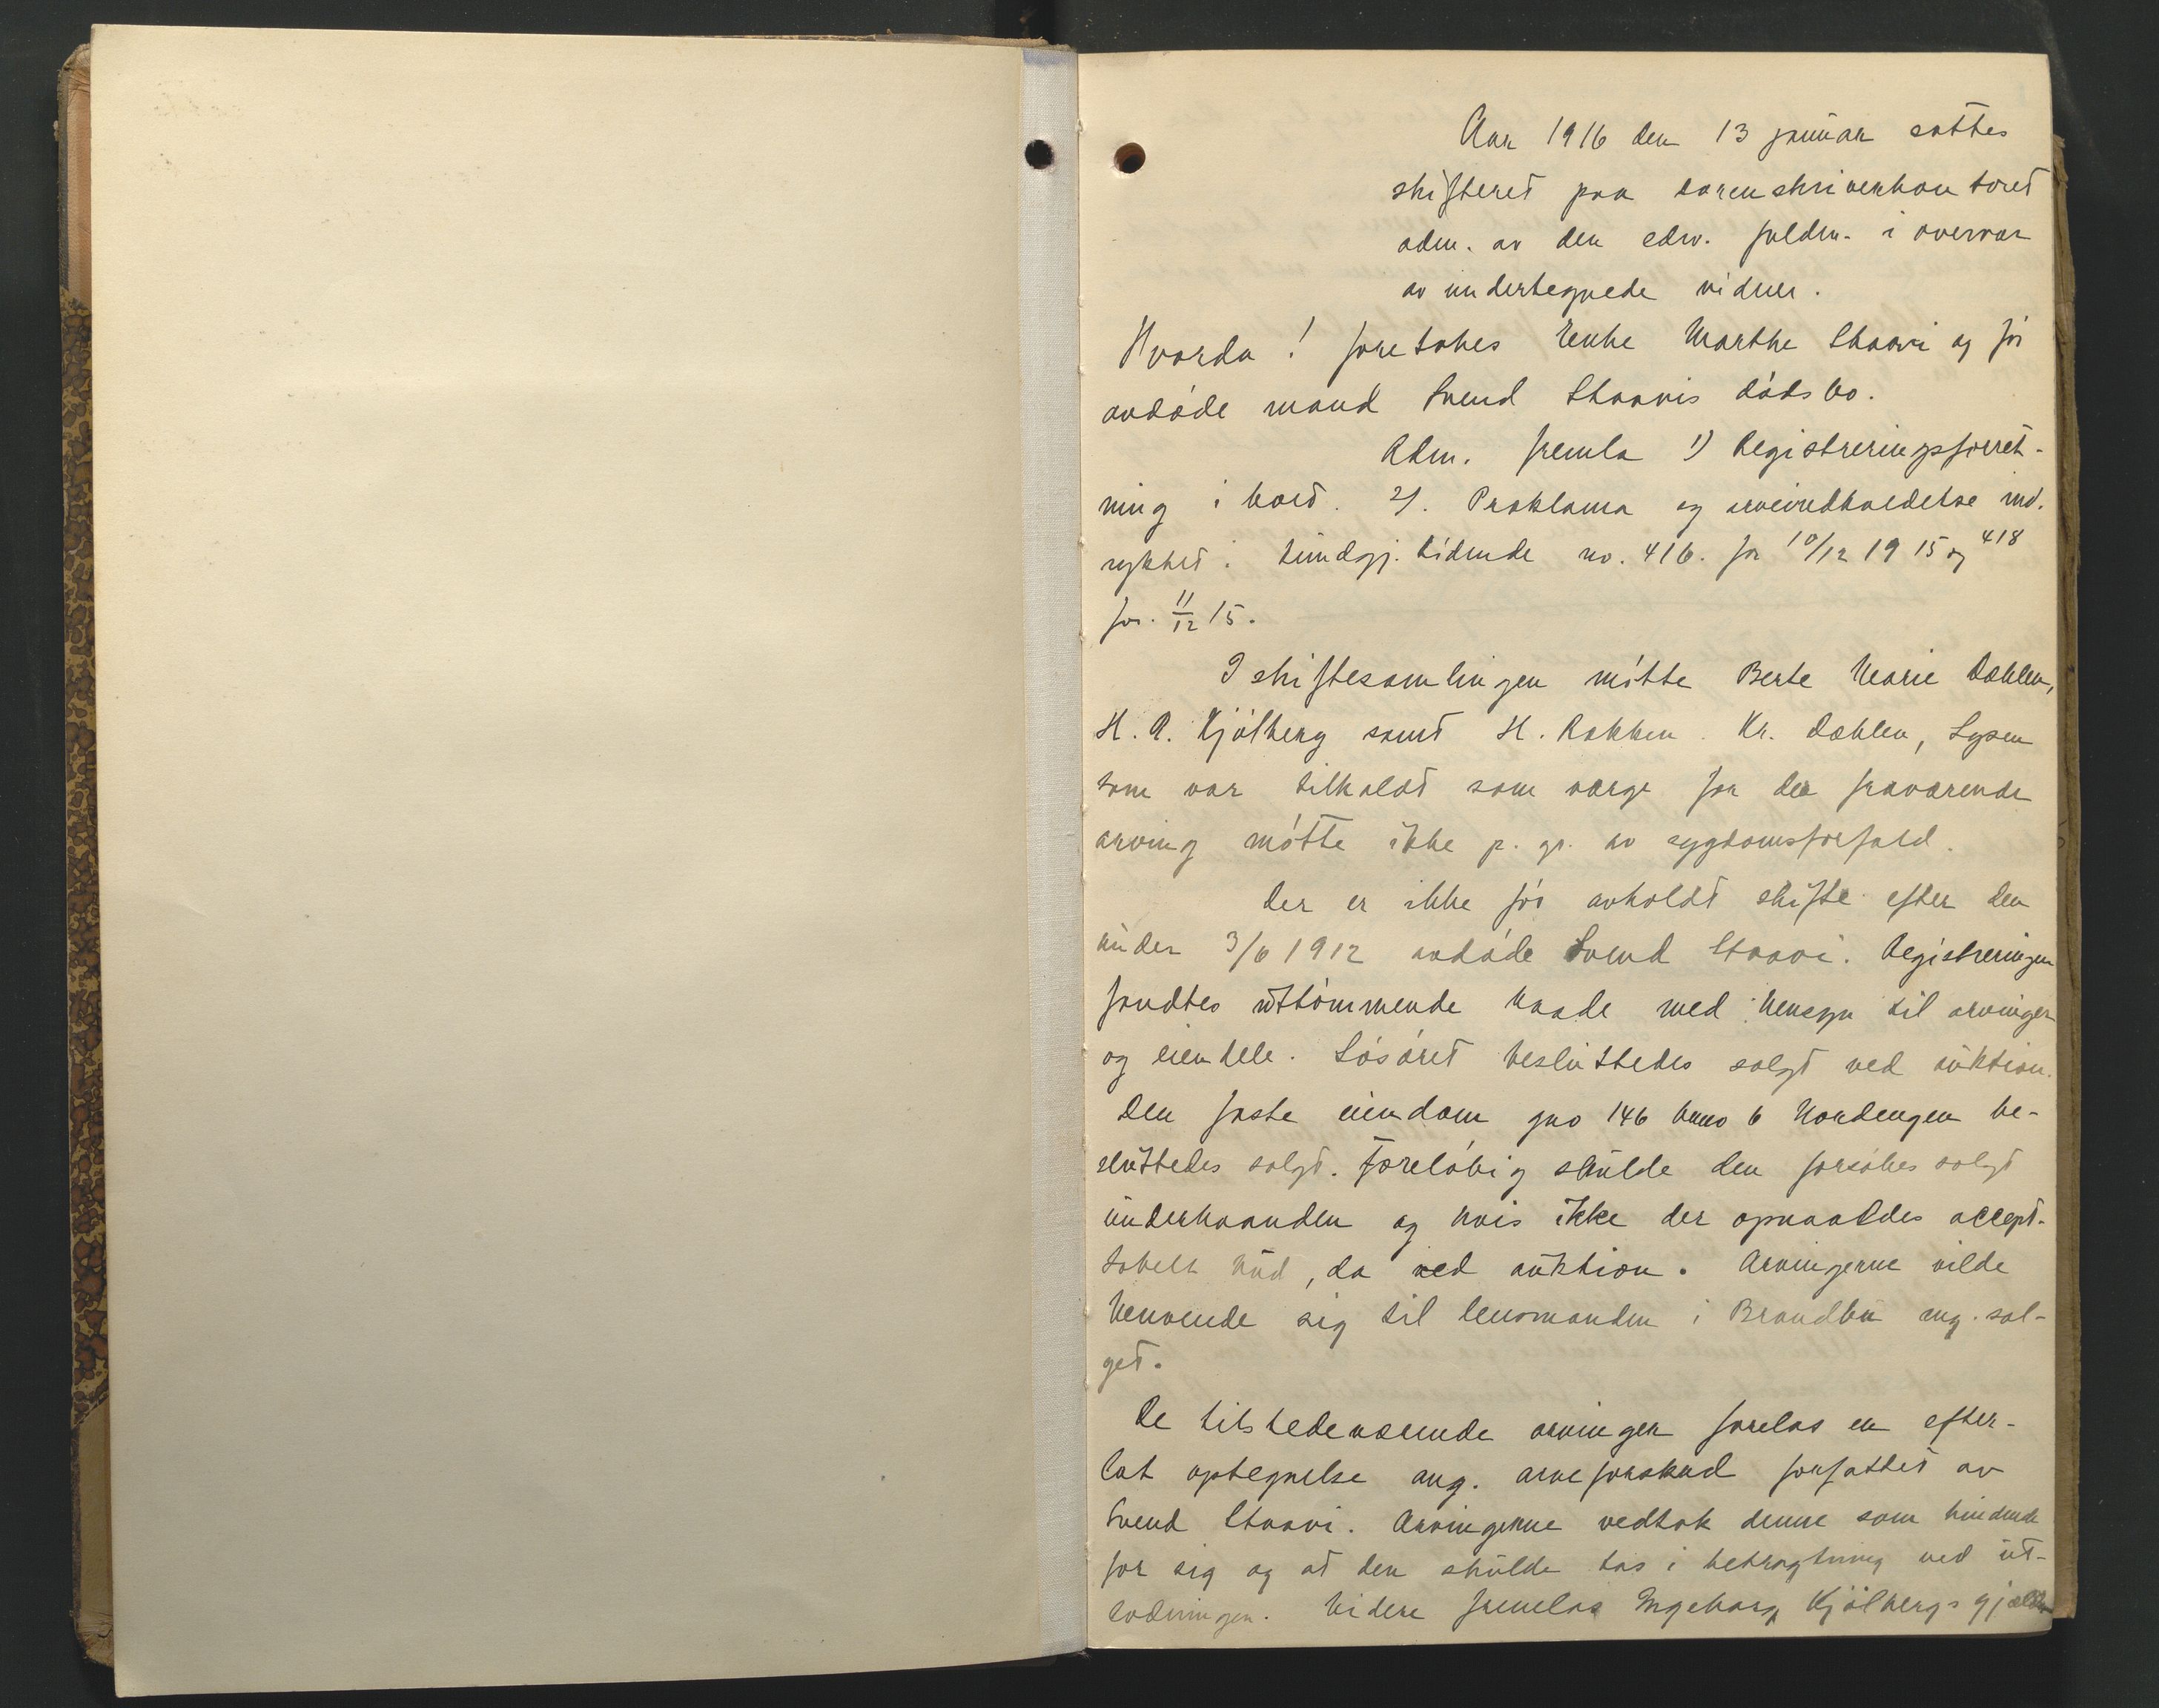 Aar 1916 den 13 januar sattes
skifteret paa sorenskriverkontoret
adm. av den edsv. fuldm. i overvær
av undertegnede vidner.
Hvorda! foretokes enke Marthe Staavi og før
avdøde mand Svend Staavis dødsbo.
Adm. fremla 1) Registreringsforret-
ning i boet. 2). Proklama og arveindkaldelse ind-
rykket i kundgj. tidende no. 416. for 10/12 1915 og 418
for. 11/12 15.
I skiftesamlingen møtte Berte Marie Dæhlen,
H. A. Kjølberg samt H. Rækken. Kr. Dæhlen, Lysen
som var tilkaldt som værge for den fraværende
arving møtte ikke p. gr. av sygdomsforfald.
Der er ikke før avholdt skifte efter den
under 3/6 1912 avdøde Svend Staavi. Registreringen
fandtes uttømmende baade med hensyn til arvinger
og eiendele. Løsøret besluttedes solgt ved auktion.
Den faste eiendom gno 146 bno 6 Nordengen be-
sluttedes solgt. Foreløbig skulde den forsøkes solgt
underhaanden og hvis ikke der opnaaddes accept-
tabelt bud, da ved auktion. Arvingerne vilde
henvende sig til lensmanden i Brandbu ang. sal-
get.
De tilstedeværende arvinger forelas en efter-
lat optegnelse ang. arveforskud forfattet av
Svend Staavi. Arvingerne vedtok denne som bindende
for sig og at den skulde tas i betragtning ved ut-
lodningen. Videre fremlas Ingeborg Kjølbergs gjælds